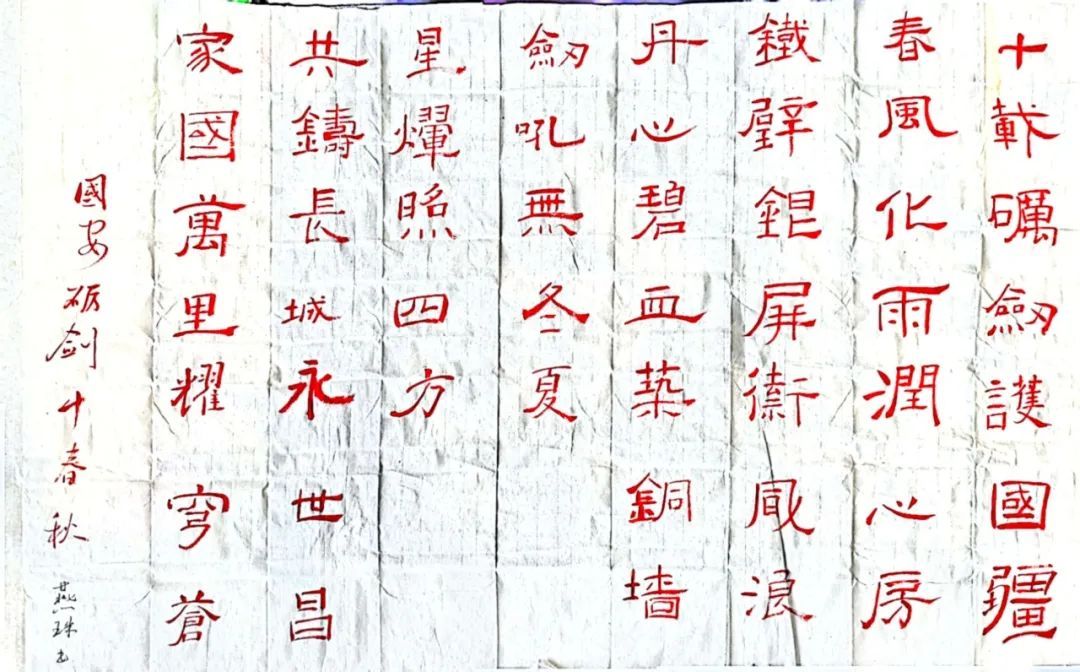 十載礪劒護國疆
春風化雨潤心房
鐵壁錕屏衛浪
丹心碧血築銅墻
劒吼無冬夏
星煇照四方
共鑄長城永世昌
家國萬里耀穹蒼
國安砺剑十春秋
燕珠书